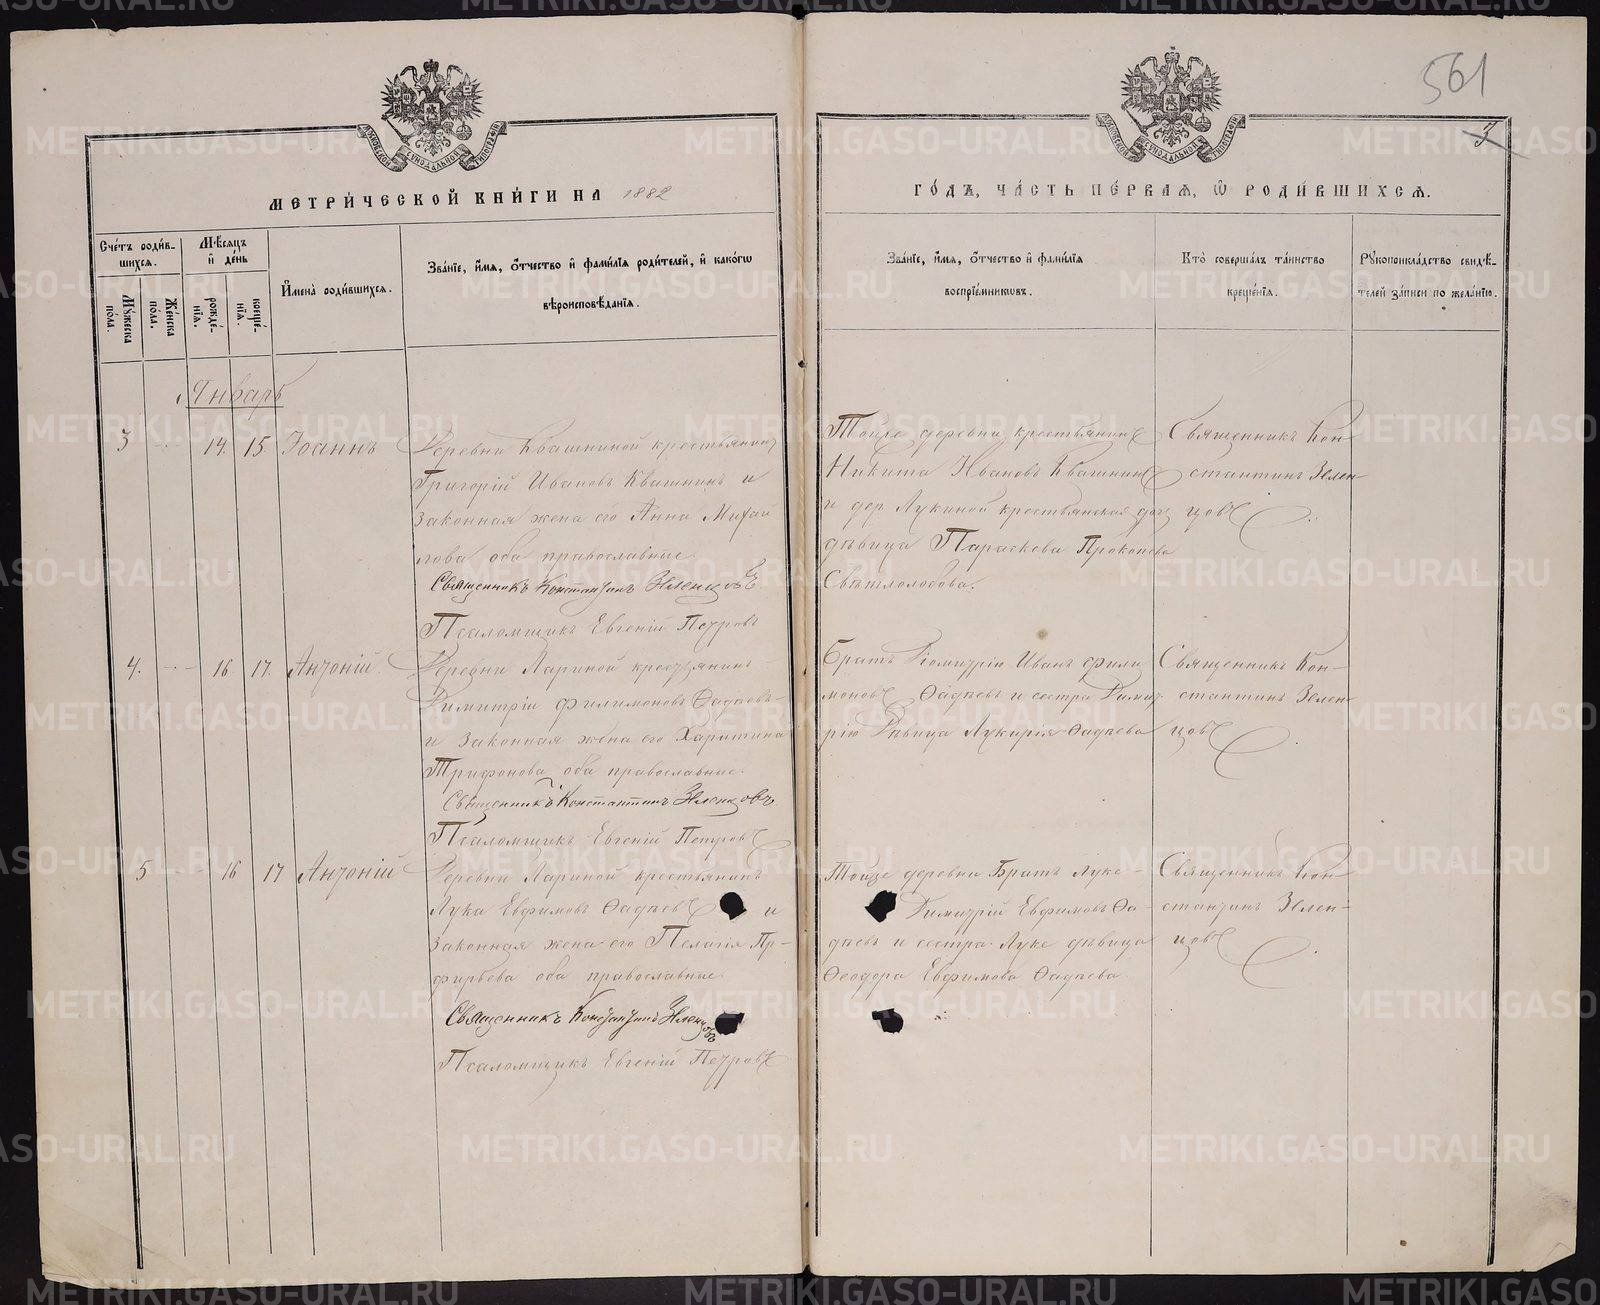 561
3
МЕТРИ́ЧЕСКОЙ КНИ́ГИ НА 1882
ГО́ДЪ, ЧА́СТЬ ПЕ́РВАѦ, Ѡ҆ РОДИ́ВШИХСѦ.
Сче́тъ роди́в-
шихсѧ.
Мꙋ́жеска по́ла.
Же́нска по́ла.
Мѣ́сѧцъ
и҆ де́нь
рожде́-
нїѧ.
креще́-
нїѧ.
И҆мена̀ роди́вшихсѧ.
Зва́нїе, и҆́мѧ, о҆́тчество и҆ фами́лїѧ роди́телей, и҆ како́гѡ
вѣроисповѣ́данїѧ.
Зва́нїе, и҆́мѧ, о҆́тчество и҆ фами́лїѧ
воспрїе́мникѡвъ.
Кто̀ соверша́лъ та́инство
креще́нїѧ.
Рꙋкоприкла́дство свидѣ́-
телей за́писи по жела́нїю.
Январь
3 - 14. 15 Іоаннъ
Деревни Квашниной крестьянинъ
Григорій Ивановъ Квашнинъ и
законная жена его Анна Михай
лова оба православные.
Священникъ Константинъ Зеленцовъ.
Псаломщикъ Евгеній Петровъ
Тойже деревни крестьянинъ
Никита Ивановъ Квашнинъ
и дер Лукиной крестьянская доч
дѣвица Параскева Прокопева
Свѣтлолобова.
Священникъ Кон-
стантинъ Зелен-
цовъ
4. - 16 17. Антоній.
Деревни Лариной крестьянинъ
Димитрій Филимоновъ Ѳадѣевъ
и законная жена его Харитина
Трифонова оба православные.
Священникъ Константинъ Зеленцовъ
Псаломщикъ Евгеній Петровъ
Братъ Димитрію Иванъ Фили
моновъ Ѳадѣевъ и сестра Димит
рію Дѣвица Лукирія Ѳадѣева
Священникъ Кон-
стантинъ Зелен-
цовъ
5 - 16 17 Антоній
Деревни Лариной крестьянинъ
Лука Евфимовъ Ѳадѣевъ и
законная жена его Пелагія Пр-
фирьева оба православные.
Священникъ Константинъ Зеленцовъ
Псаломщикъ Евгеній Петровъ
Тойже деревни Братъ Луке-
Димитрій Евфимовъ Ѳа-
дѣевъ и сестра Луке дѣвица
Ѳеодора Евфимова Ѳадѣева
Священникъ Кон-
стантинъ Зелен-
цовъ
METRIKI.GASO-URAL.RU